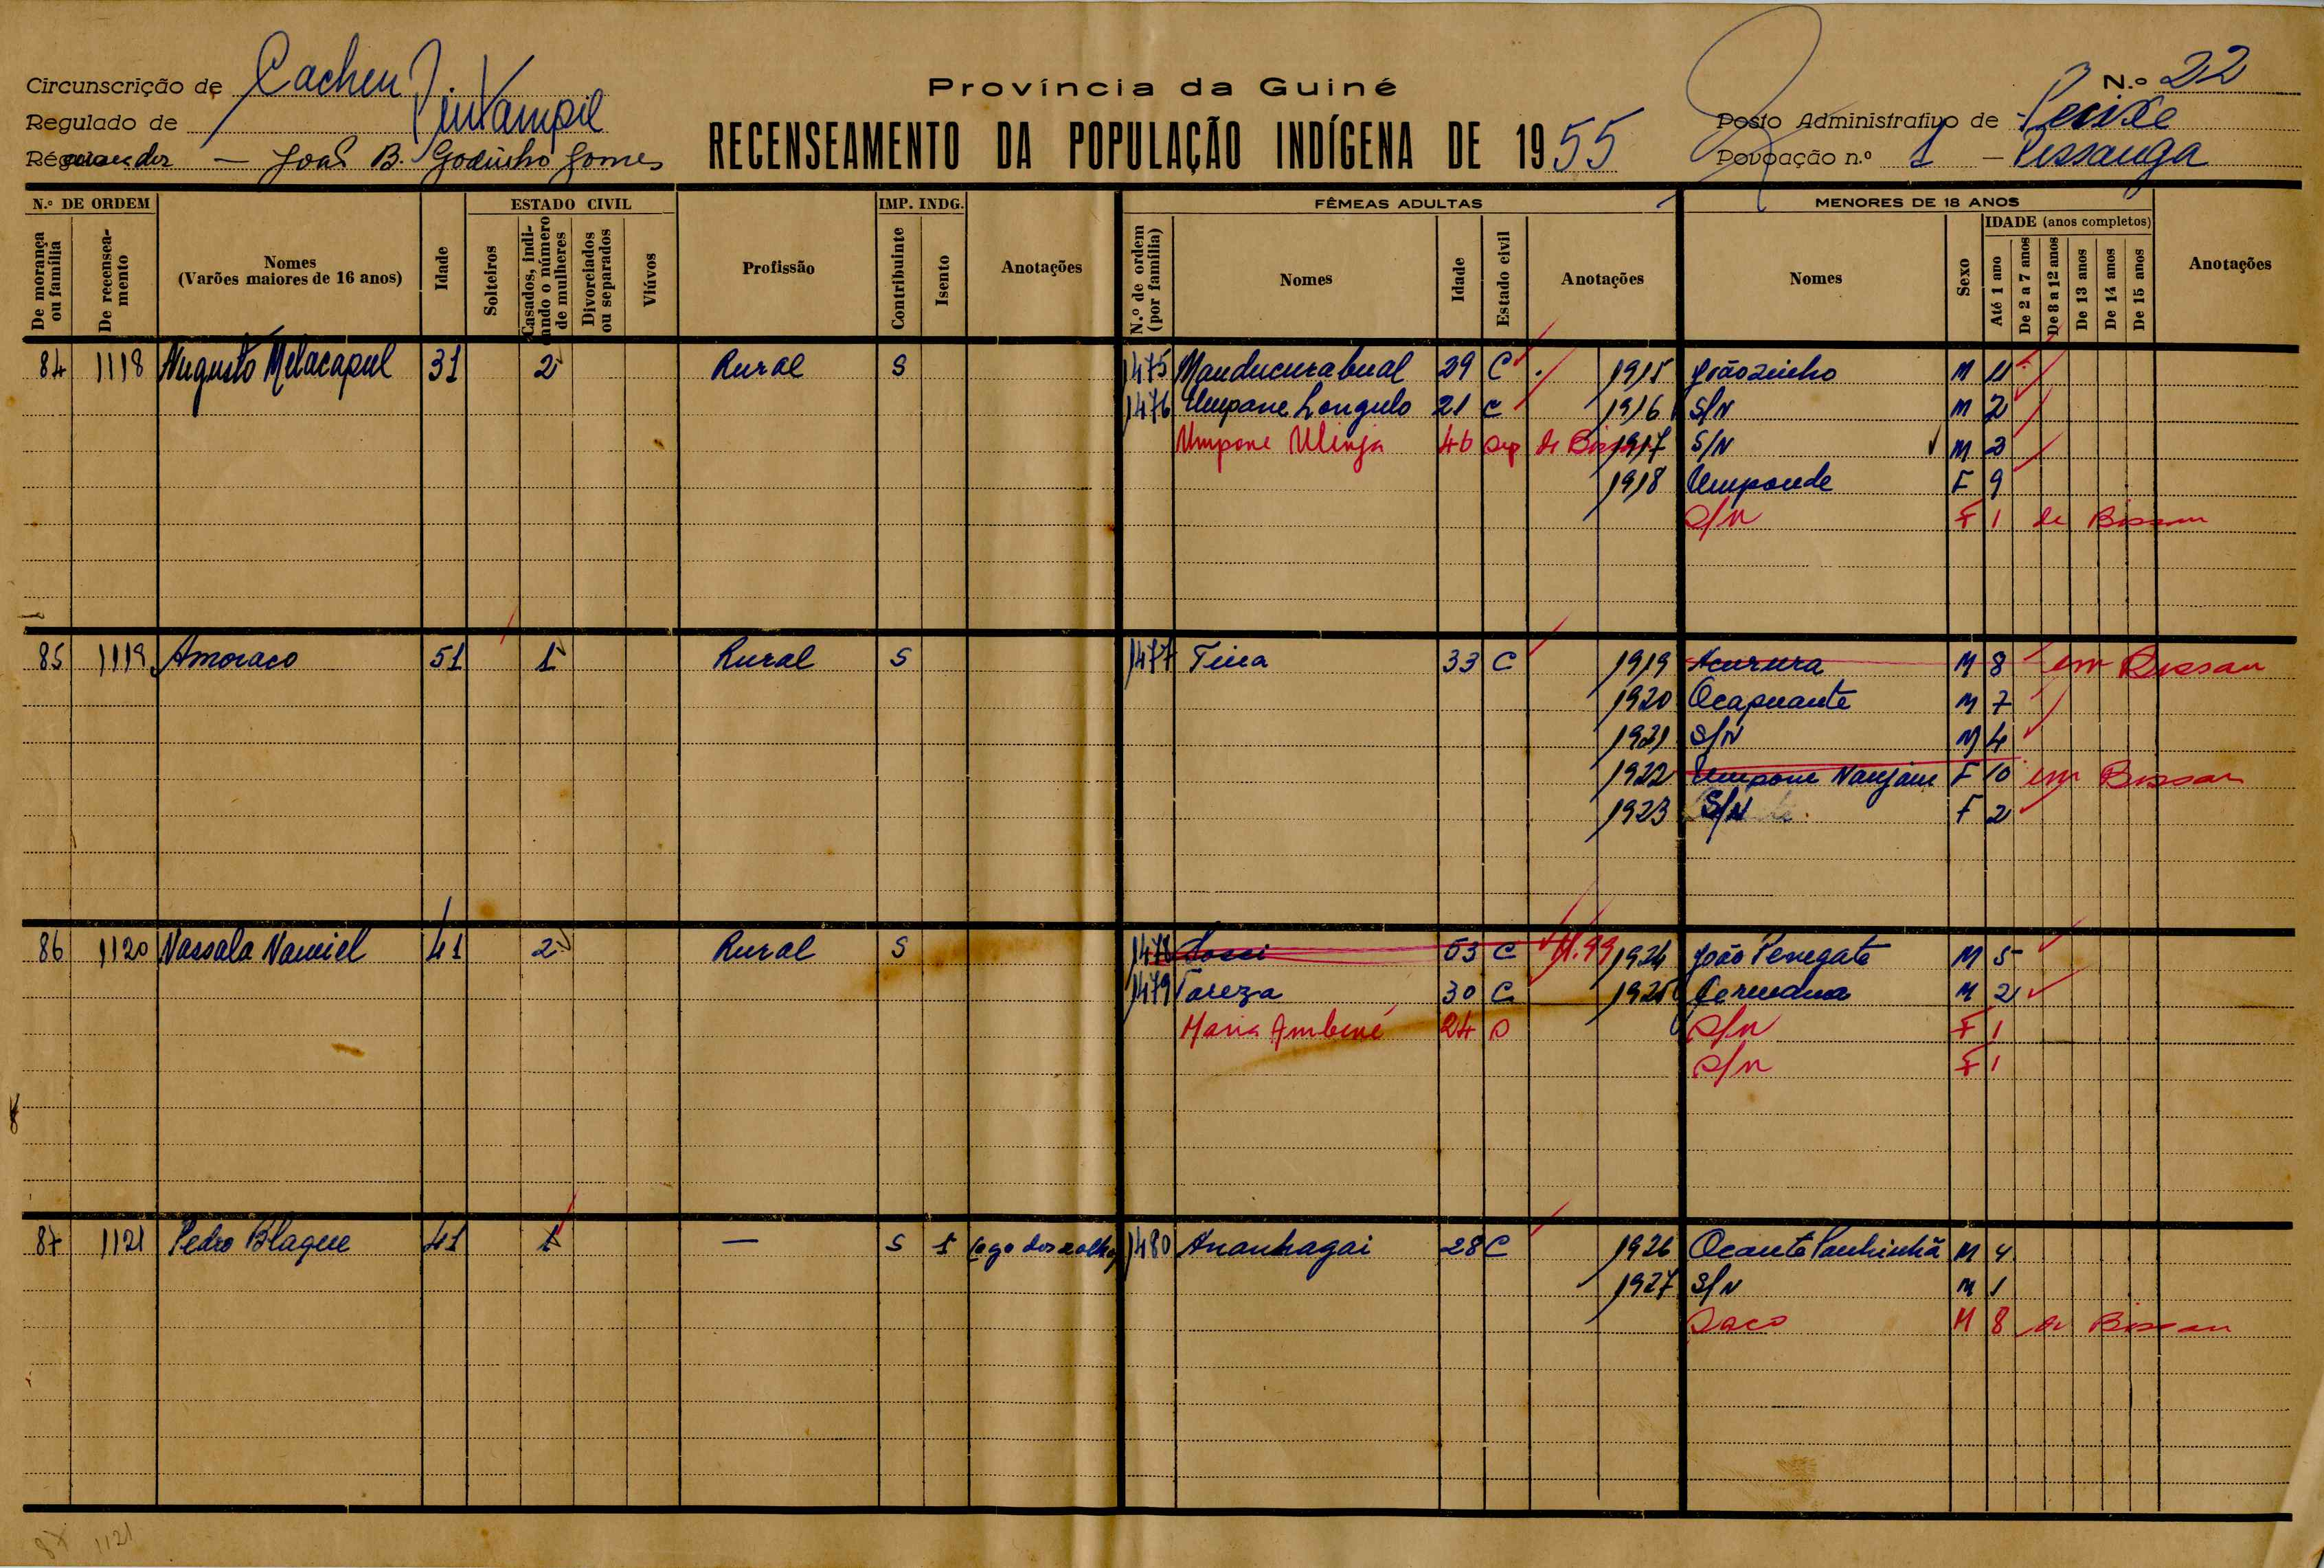 Circunscrição de Cacheu
Província da Guiné
N.º 22
Regulado de Pintampil
Posto Administrativo de Pecixe
João B. Godinho Gomes
RECENSEAMENTO DA POPULAÇÃO INDÍGENA DE 1955
Povoação n.º 1 –
N.º DE ORDEM
ESTADO CIVIL
IMP. INDG.
FÊMEAS ADULTAS
MENORES DE 18 ANOS
IDADE (anos completos)
De morança ou família
De recensea-mento
Nomes (Varões maiores de 16 anos)
Idade
Solteiros
Casados, indi-cando o número de mulheres
Divorciados ou separados
Viúvos
Profissão
Contribuinte
Isento
Anotações
N.º de ordem (por família)
Nomes
Idade
Estado civil
Anotações
Nomes
Sexo
Até 1 ano
De 2 a 7 anos
De 8 a 12 anos
De 13 anos
De 14 anos
De 15 anos
Anotações
84 1118 Augusto Melacapul 31 2 Rural S 1475 Manducurabual 29 C 1915 Joãozinho M 11
1476 Umpane Longulo 21 C 1916 S/N M 2
Umpone Ulinja 46 Sep de 1917 S/N M 2
1918 Umponde F 9
S/N F 1 de Bissau
85 1119 Amoraco 51 1 Rural S 1477 Tina 33 C 1919 Acurura M 8 em Bissau
1920 Ocapuante M 7
1921 S/N M 4
1922 Umpone Nanjam F 10 em Bissau
1923 S/N F 2
86 1120 Nassala Namiel 41 2 Rural S 1478 53 C 1924 João Penegate M 5
1479 Tareza 30 C 1925 Germana M 2
Maria Ambené 24 S S/N F 1
S/N F 1
87 1121 Pedro Blaque 41 1 — S 1 1480 Ananhagai 28 C 1926 Ocante Panhinhã M 4
1927 S/N M 1
Saco M 8 de Bissau
87 1121